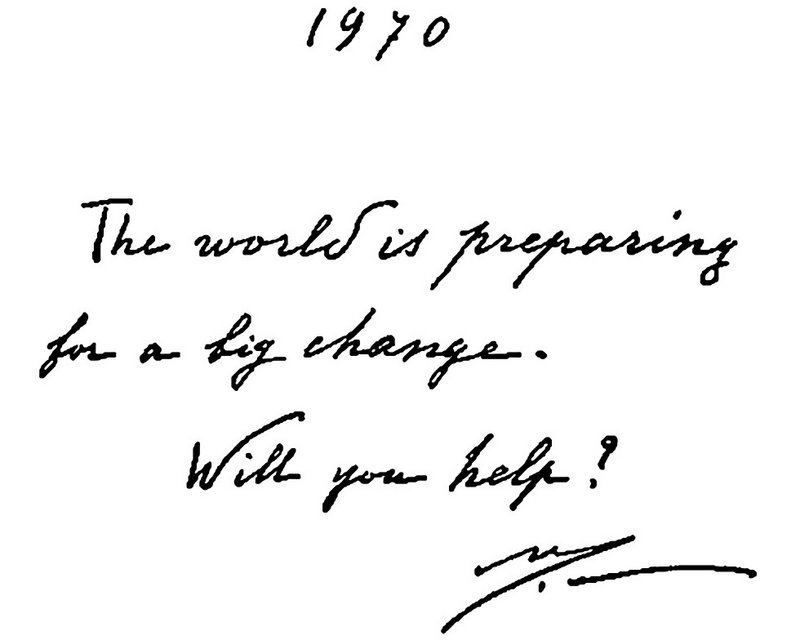 1970
The world is preparing
for a big change.
Will you help?